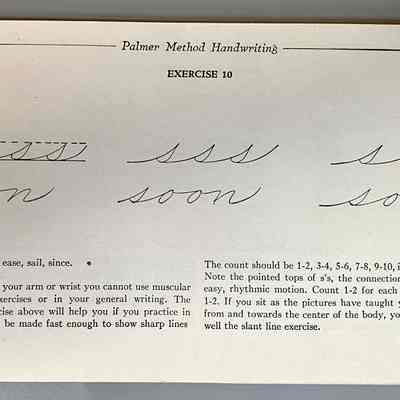 Palmer Method Handwriting
EXERCISE 10
sss sss s
n soon so
ease, sail, since.
your arm or wrist you cannot use muscular
xercises or in your general writing. The
cise above will help you if you practice in
be made fast enough to show sharp lines
The count should be 1-2, 3-4, 5-6, 7-8, 9-10, i
Note the pointed tops of s's, the connection
easy, rhythmic motion. Count 1-2 for each
1-2. If you sit as the pictures have taught y
from and towards the center of the body, yo
well the slant line exercise.